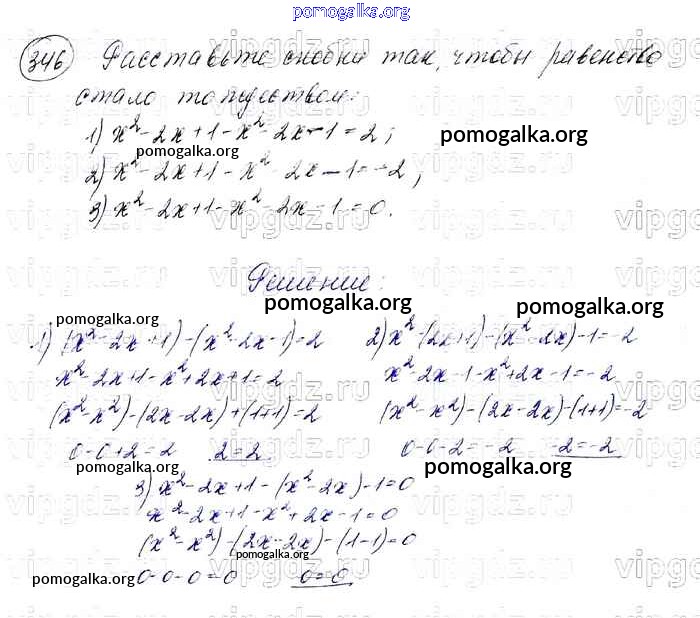 pomogalka.org
346 Расставьте скобки так, чтобы равенство
стало тождеством:
1) x² - 2x + 1 - x² - 2x - 1 = 2;
pomogalka.org
pomogalka.org
2) x² - 2x + 1 - x² - 2x - 1 = -2;
3) x² - 2x + 1 - x² - 2x - 1 = 0.
Решение:
pomogalka.org pomogalka.org pomogalka.org
1) (x² - 2x + 1) - (x² - 2x - 1) = 2
x² - 2x + 1 - x² + 2x + 1 = 2
(x² - x²) - (2x - 2x) + (1 + 1) = 2
0 - 0 + 2 = 2 2 = 2
2) x² - (2x + 1) - (x² - 2x) - 1 = -2
x² - 2x - 1 - x² + 2x - 1 = -2
(x² - x²) - (2x - 2x) - (1 + 1) = -2
0 - 0 - 2 = -2 -2 = -2
pomogalka.org pomogalka.org
3) x² - 2x + 1 - (x² - 2x) - 1 = 0
x² - 2x + 1 - x² + 2x - 1 = 0
(x² - x²) - (2x - 2x) - (1 - 1) = 0
pomogalka.org
pomogalka.org
0 - 0 - 0 = 0 0 = 0
vipgdz.ru